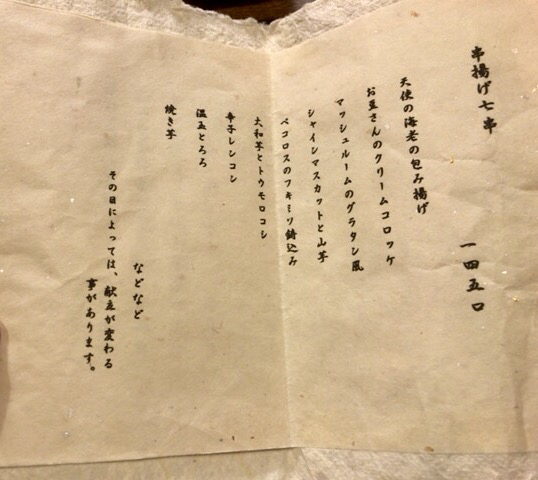 串揚げ七串
一四五〇
天使の海老の包み揚げ
お豆さんのクリームコロッケ
マッシュルームのグラタン風
シャインマスカットと山芋
ペコロスのフキミソ鋳込み
大和芋とトウモロコシ
辛子レンコン
温玉とろろ
焼き芋
などなど
その日によっては、献立が変わる
事があります。